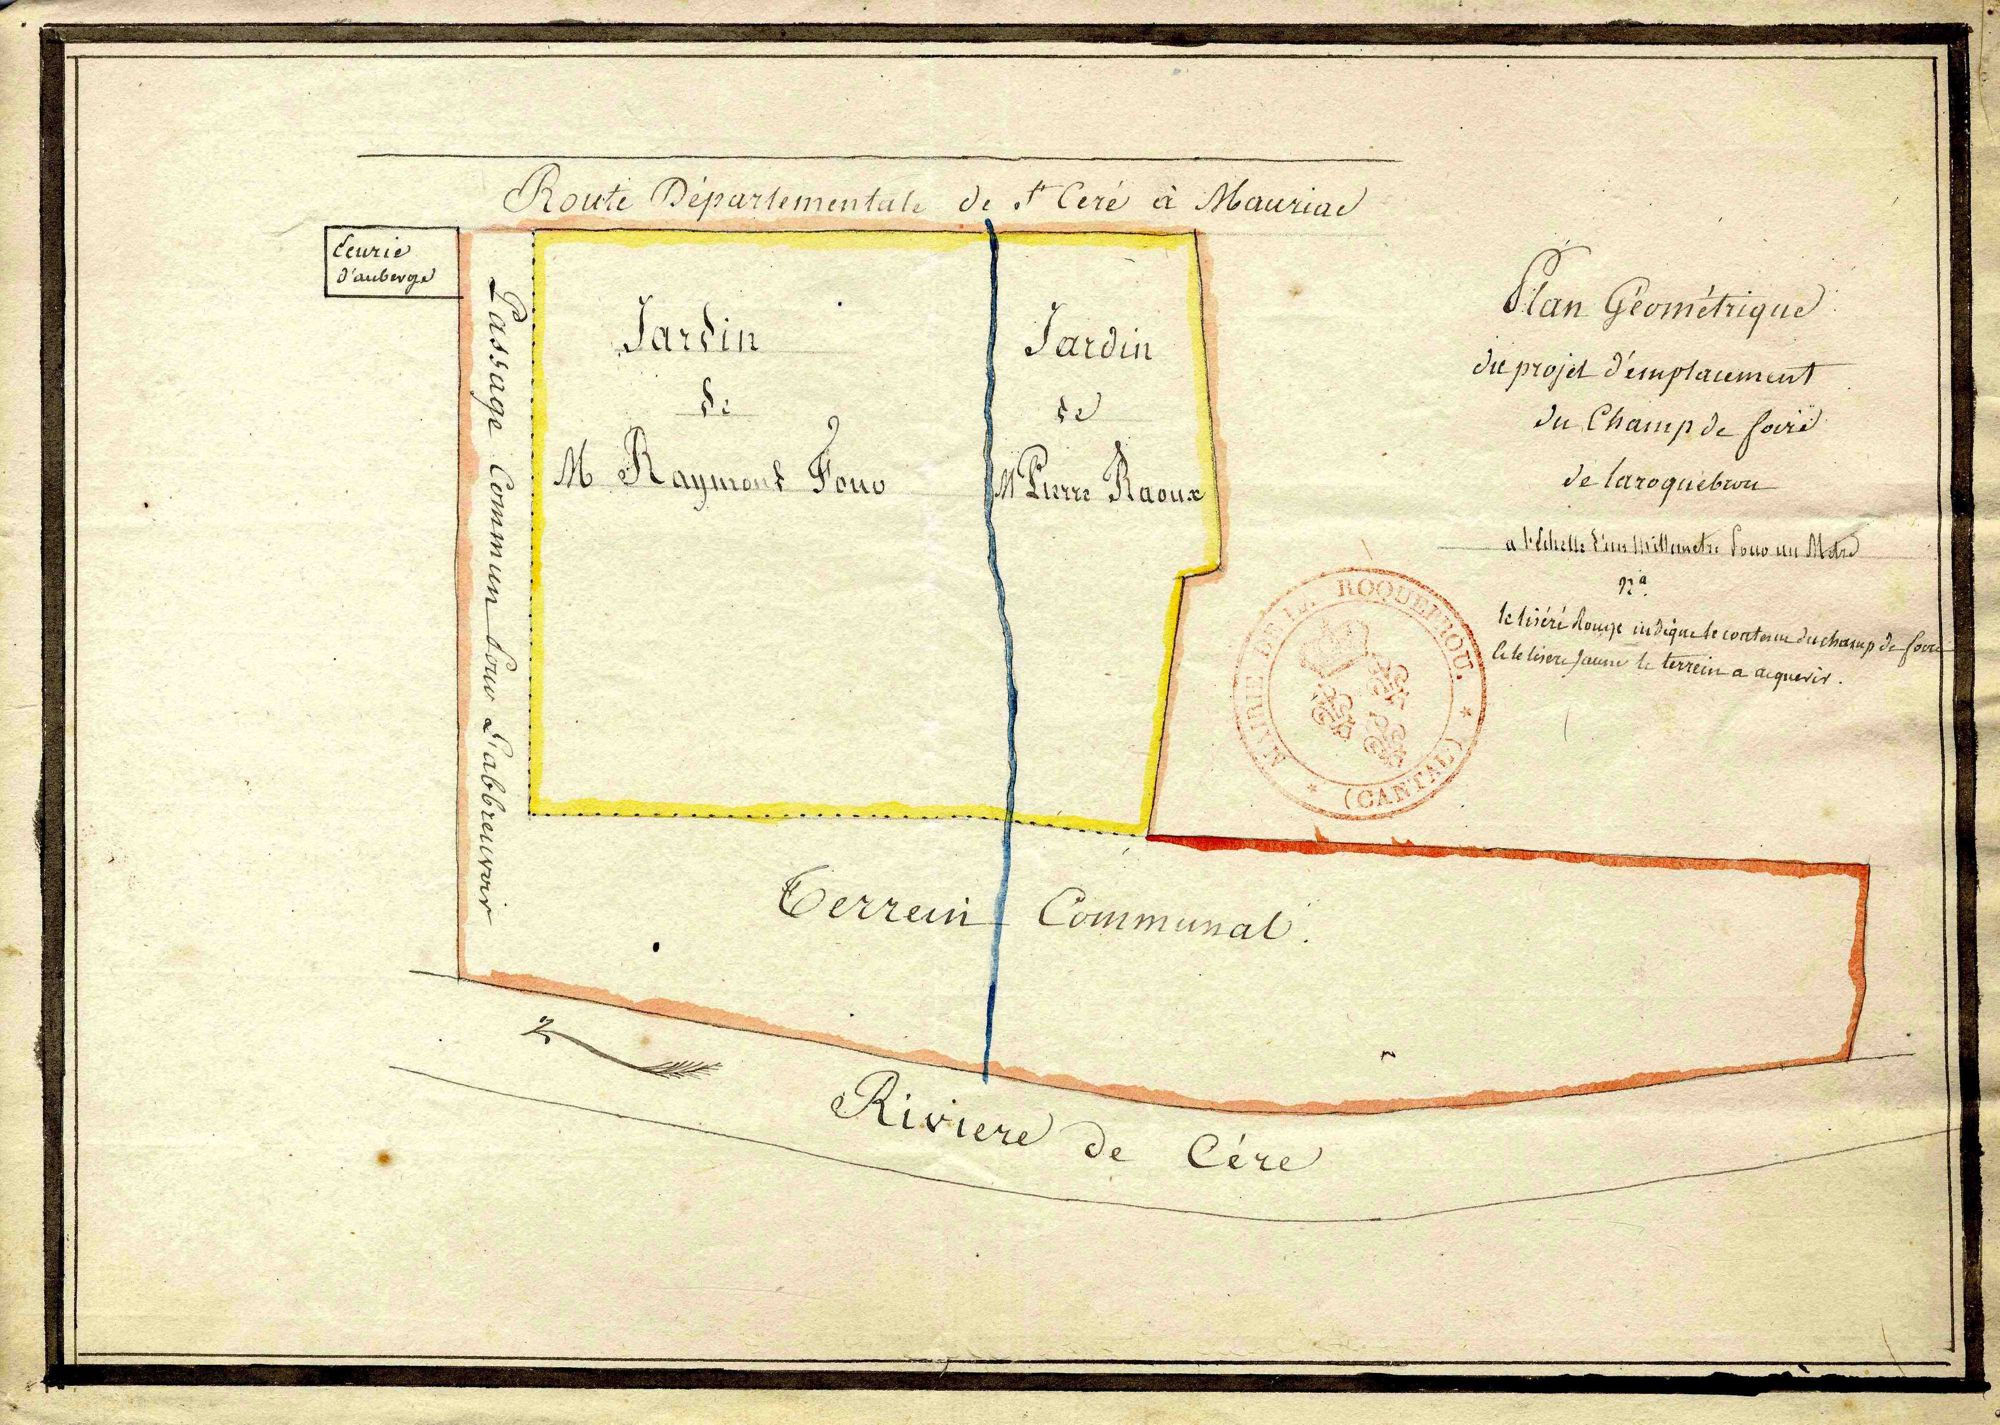 Route Départementale de St Ceré à Mauriac
Ecurie
d'auberge
Passage Commun pour L'abbreuvoir
Jardin
de
M Raymond Four
Jardin
de
Mr Pierre Raoux
Terrein Communal.
Riviere de Cére
Plan Géométrique
du projet d'emplacement
du Champ de foire
de laroquebrou
a l'Echelle d'un Millimetre pour un Metre
Na.
le liséré Rouge indique le contour du champ de foire
le lisere jaune le terrein a acquerir.
MAIRIE DE LA ROQUEBROU.
(CANTAL)